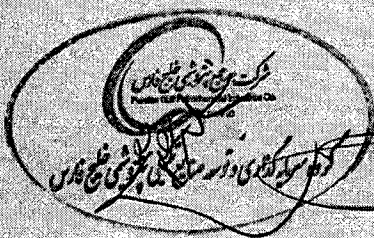 شرکت صنایع پتروشیمی خلیج فارس
Persian Gulf Petrochemical Industries Co.
گروه سرمایه گذاری و توسعه صنایع تکمیلی پتروشیمی خلیج فارس